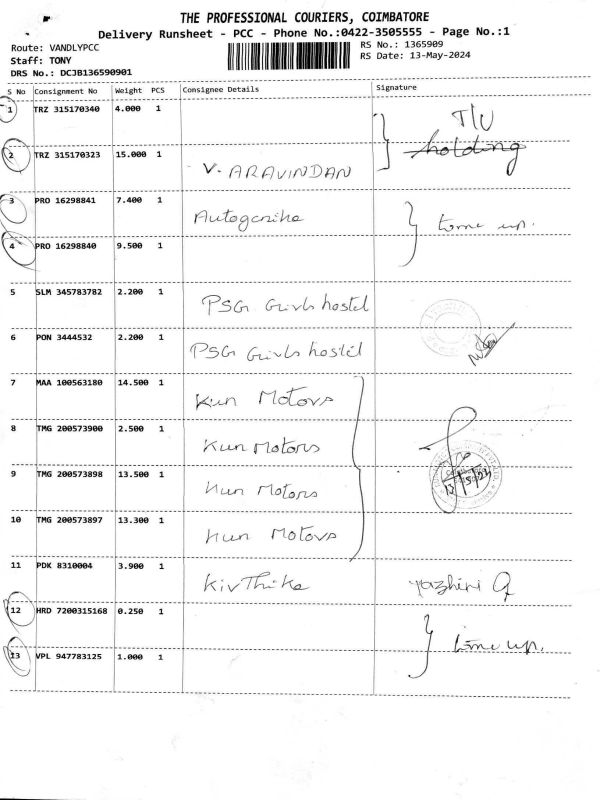 THE PROFESSIONAL COURIERS, COIMBATORE
Delivery Runsheet - PCC - Phone No.:0422-3505555 - Page No.:1
Route: VANDLYPCC
Staff: TONY
DRS No.: DCJB136590901
RS No.: 1365909
RS Date: 13-May-2024
S No Consignment No Weight PCS Consignee Details Signature
1 TRZ 315170340 4.000 1 T/U
holding
2 TRZ 315170323 15.000 1 V. ARAVINDAN
3 PRO 16298841 7.400 1 time up.
4 PRO 16298840 9.500 1
5 SLM 345783782 2.200 1 PSG Girls hostel
6 PON 3444532 2.200 1 PSG Girls hostel
7 MAA 100563180 14.500 1 Kun Motors
8 TMG 200573900 2.500 1 Kun Motors
9 TMG 200573898 13.500 1 Kun Motors 13/5/24
10 TMG 200573897 13.300 1 Kun Motors
11 PDK 8310004 3.900 1 KivThika
12 HRD 7200315168 0.250 1 time up.
13 VPL 947783125 1.000 1